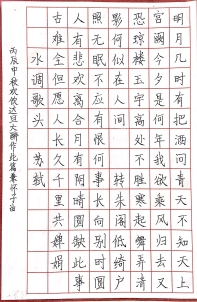 明月几时有把酒问青天不知天上
宫阙今夕是何年我欲乘风归去又
恐琼楼玉宇高处不胜寒起舞弄清
影何似在人间 转朱阁低绮户
照无眠不应有恨何事长向别时圆
人有悲欢离合月有阴晴圆缺此事
古难全但愿人长久千里共婵娟
水调歌头 苏轼
丙辰中秋欢饮达旦大醉作此篇兼怀子由